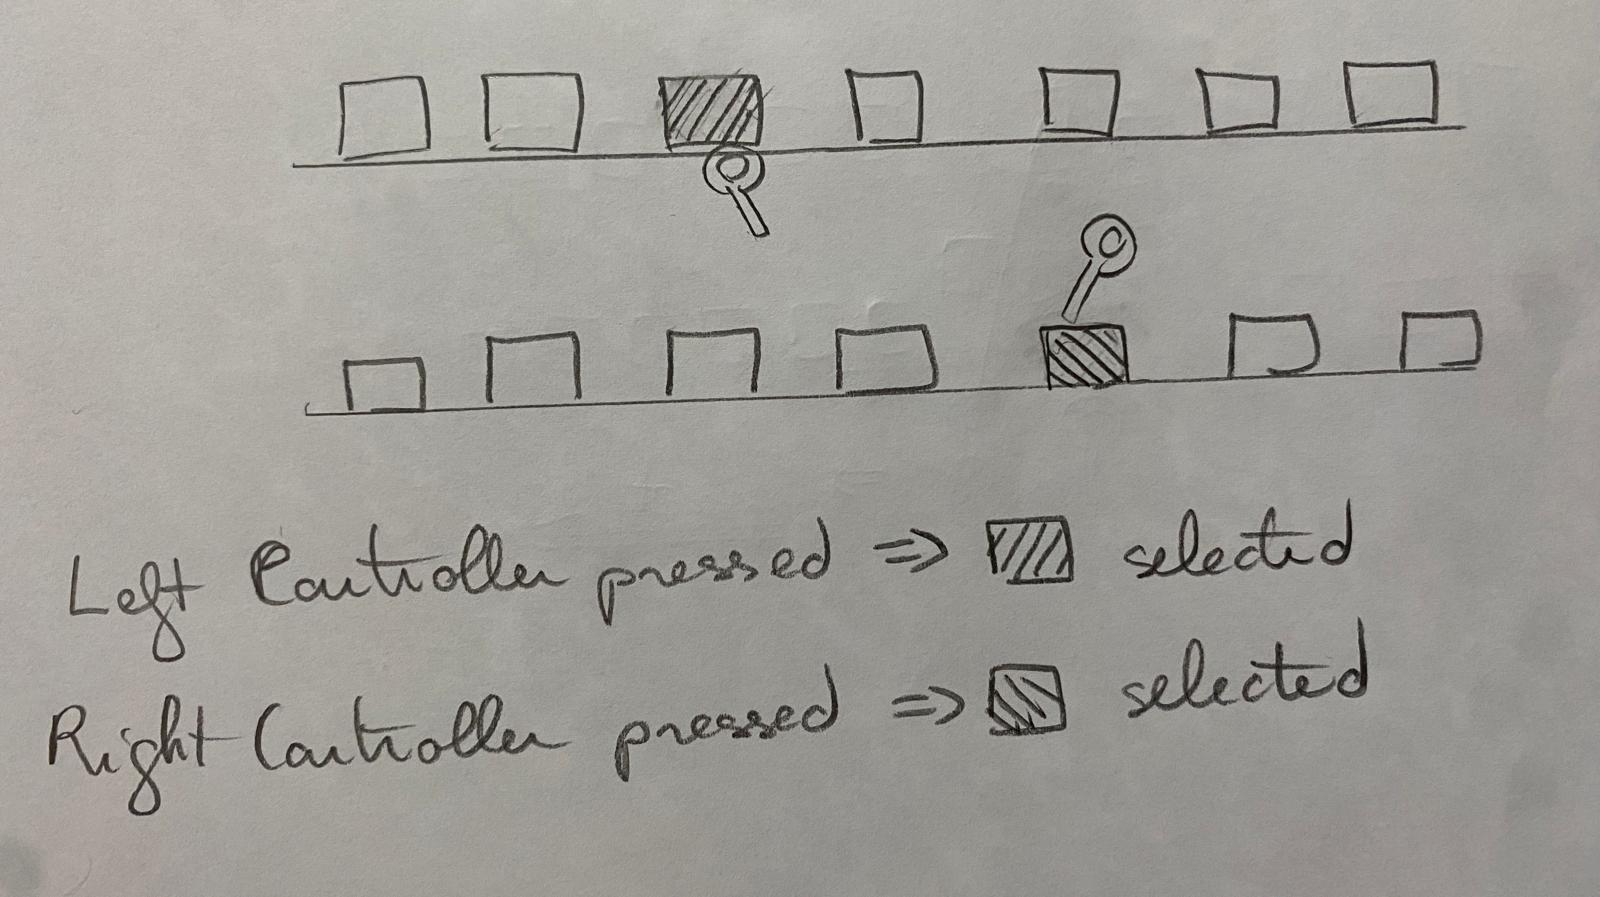 Left Controller pressed => selected
Right Controller pressed => selected